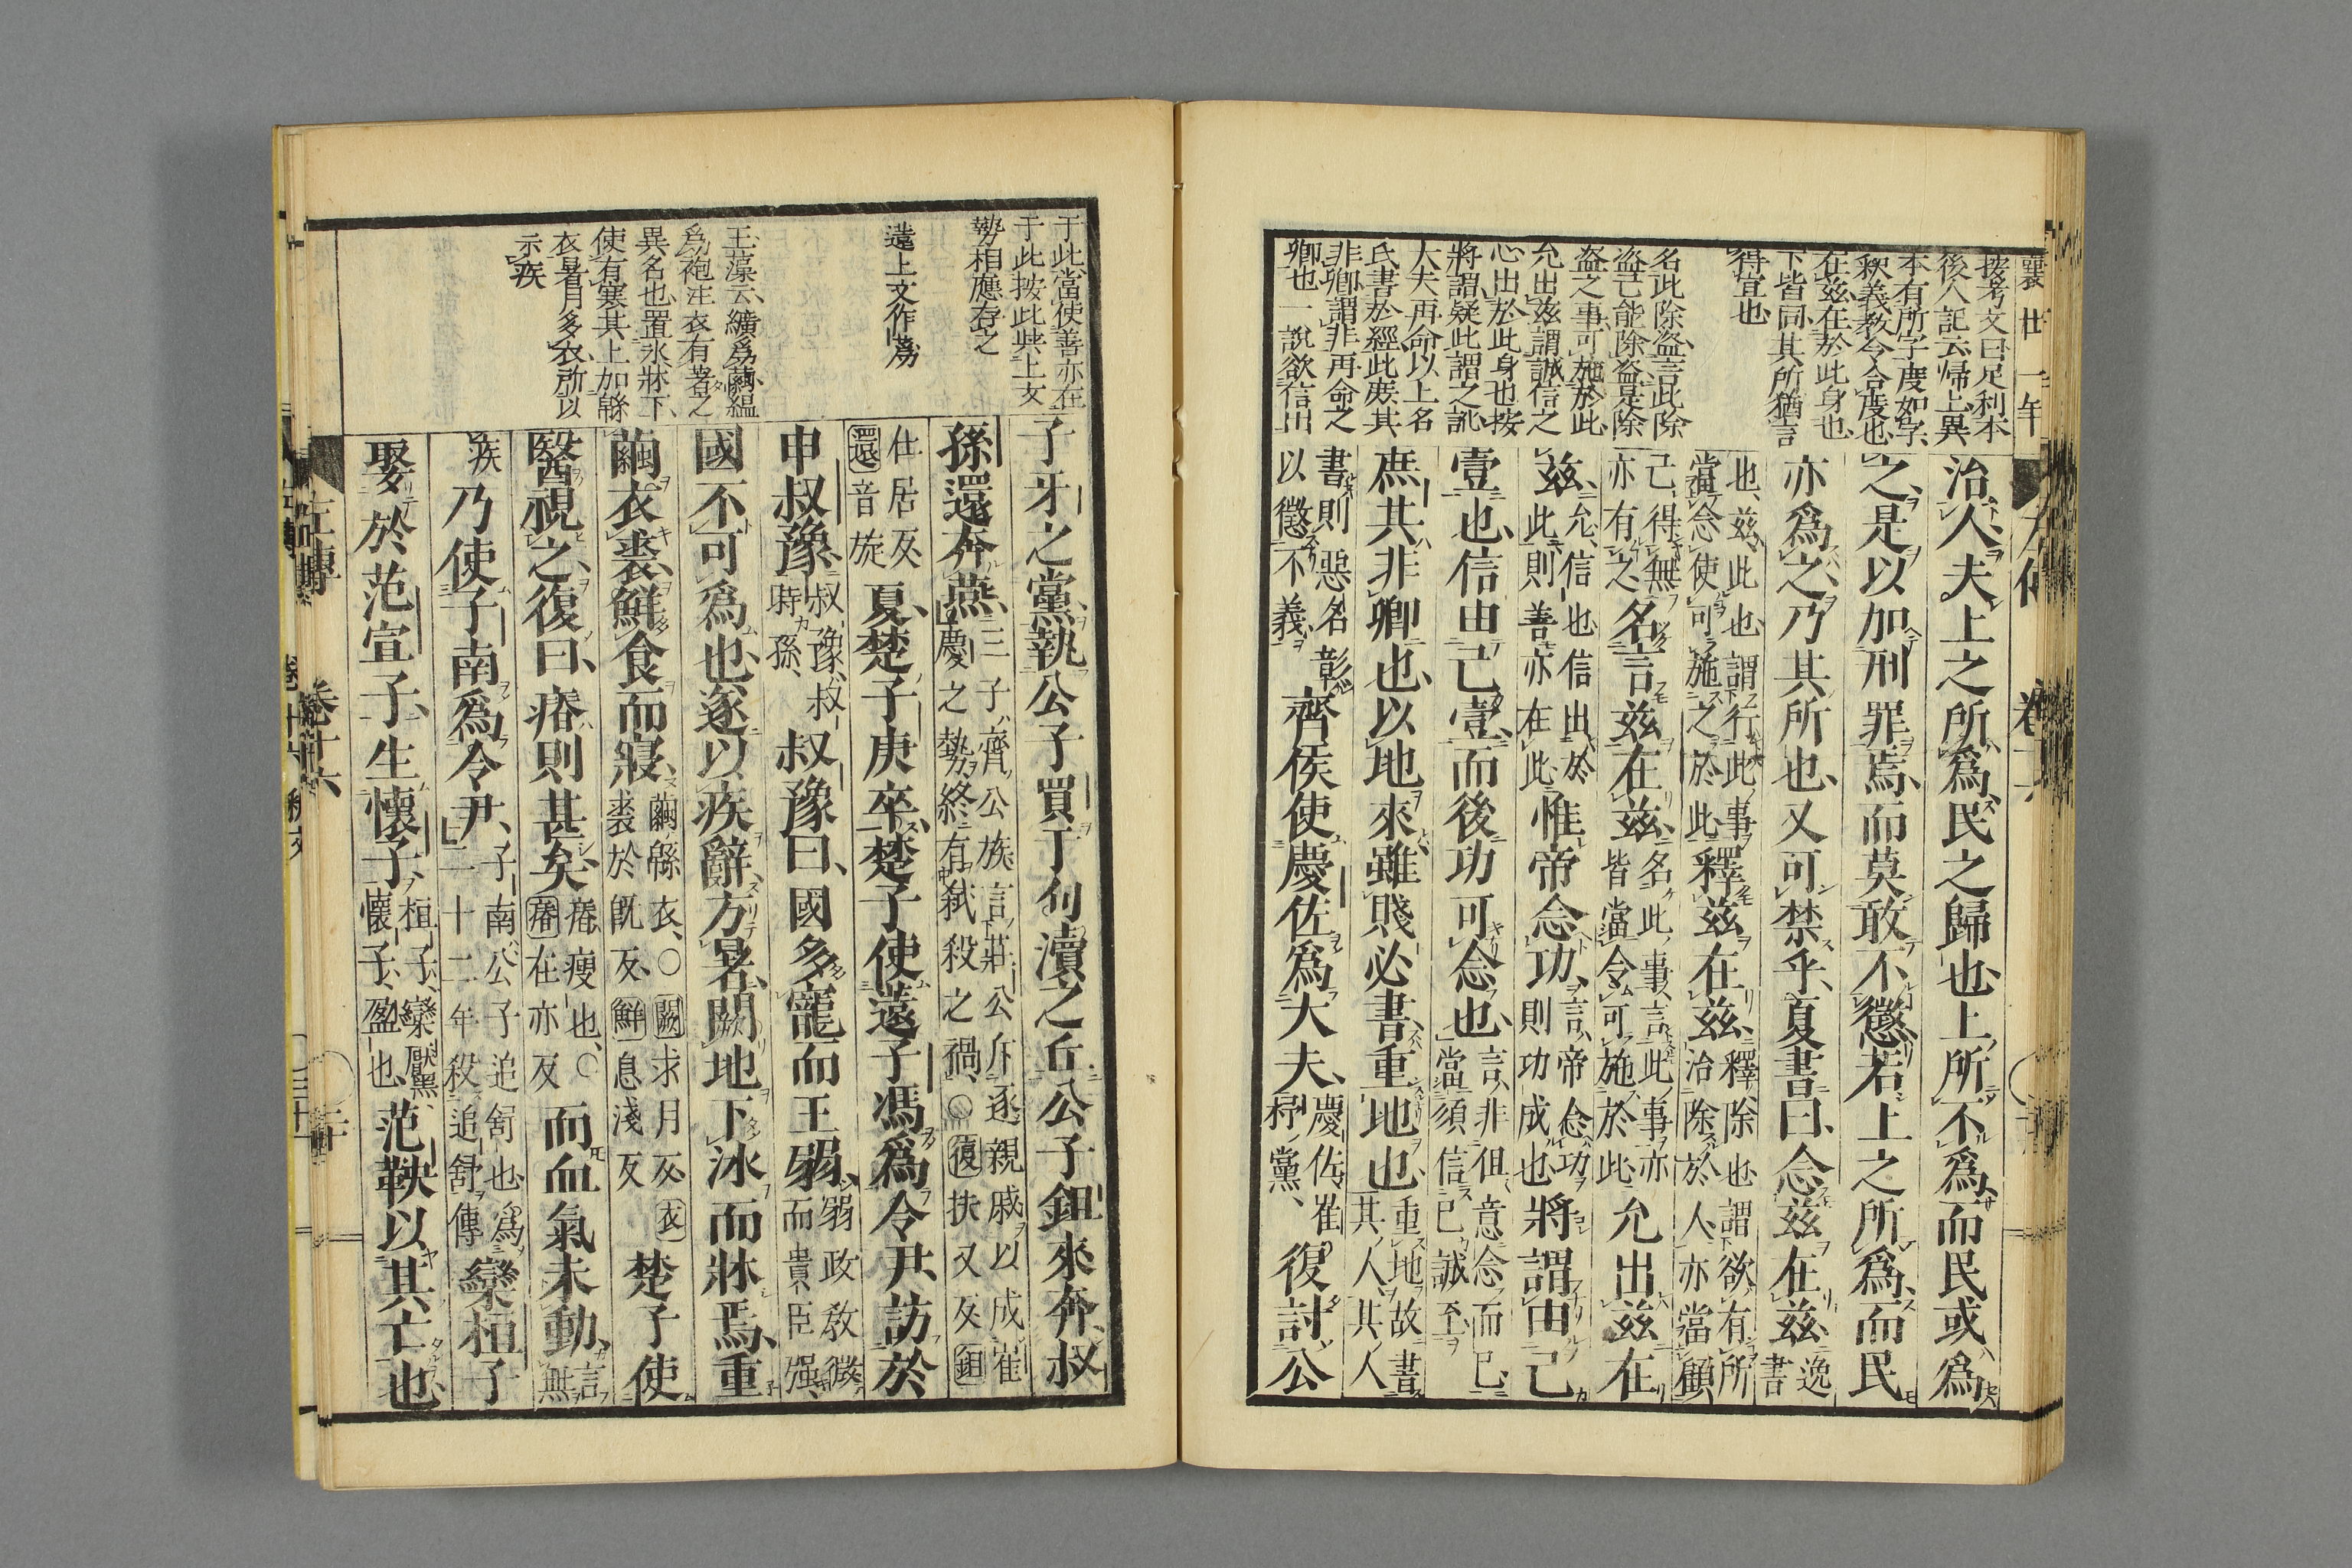 襄廿一年
按考文曰足利本
後人記云帰上異
本有所字度如字
釈義教令合度也
在玆在於此身也
下皆同其所猶言
得宜也
名此除盜言此除
盜已能除盜是除
盜之事可施於此
允出玆謂誠信之
心出於此身也按
將謂疑此謂之訛
大夫再命以上名
氏書於經此庶其
非卿謂非再命之
卿也一說欲信出
治人夫上之所爲民之歸也上所不爲而民或爲
之是以加刑罪焉而莫敢不懲若上之所爲而民
亦爲之乃其所也又可禁乎夏書曰念玆在玆逸書
也玆此也謂行此事當念使可施之於此釋玆在玆釋除也謂欲有所治除於人亦當顧
己得無亦有之名言玆在玆名此事言此事亦皆當令可施於此允出玆在
玆允信也信出於此則善亦在此惟帝念功言帝念功則功成也將謂由己
壹也信由己壹而後功可念也言非但意念而已當須信己誠至
庶其非卿也以地來雖賤必書重地也重地故書其人其人
書則惡名彰以懲不義齊侯使慶佐爲大夫慶佐崔杼黨復討公
于此當使善亦在
于此按此與上文
勢相應存之
薳上文作蒍
王藻云纊爲繭縕
爲袍注衣有著之
異名也置氷牀下
使有寒其上加緜
衣暑月多衣所以
示疾
子牙之黨執公子買于句瀆之丘公子鉏來奔叔
孫還奔燕三子齊公族言莊公斥逐親戚以成崔慶之勢終有弒殺之禍○復扶又反鉏
仕居反還音旋夏楚子庚卒楚子使薳子馮爲令尹訪於
申叔豫叔豫叔時孫叔豫曰國多寵而王弱弱政教微而貴臣强
國不可爲也遂以疾辭方暑闕地下冰而牀焉重
繭衣裘鮮食而寢繭緜衣○闕求月反衣裘於既反鮮息淺反楚子使
醫視之復曰瘠則甚矣瘠瘦也○瘠在亦反而血氣未動言無
疾乃使子南爲令尹子南公子追舒也爲二十二年殺追舒傳欒桓子
娶於范宣子生懷子桓子欒黶懷子盈也范鞅以其亡也
左傳　卷十六